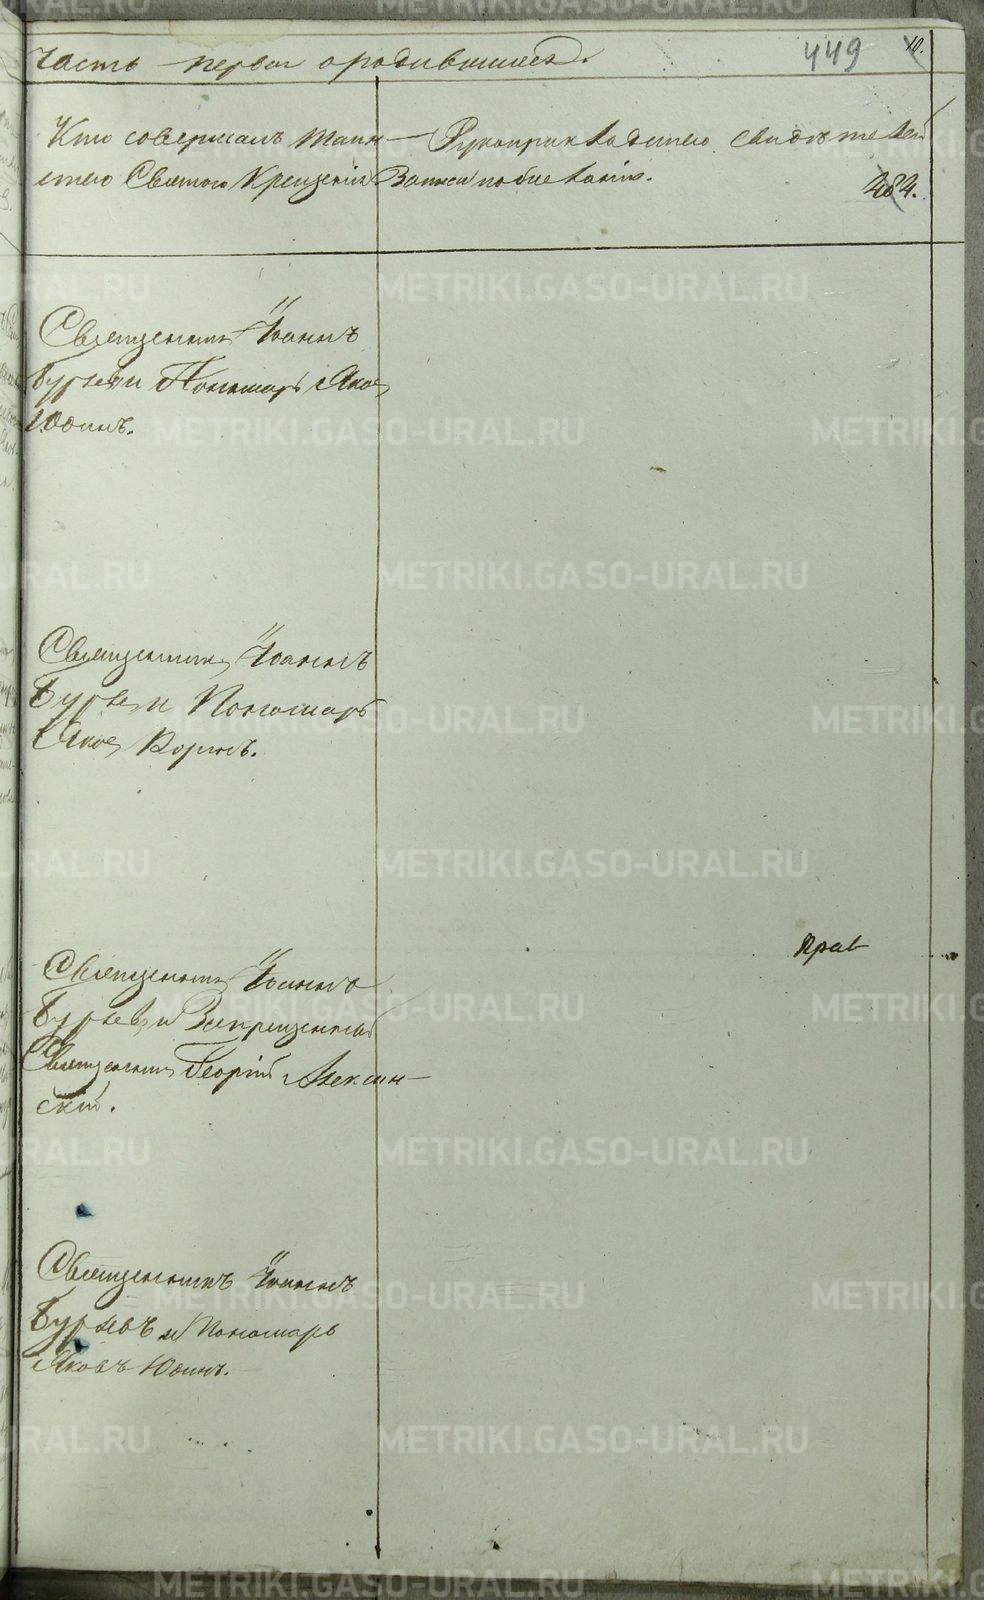 Часть первая о родившихся.
449
10.
Кто совершалъ Таин-
ство Святого Крещенія
Рукоприкладство свидѣтелей
записи по желанію.
484.
Священникъ Іоаннъ
Бурьевъ и Пономарь Яковъ
Юдинъ.
Священникъ Іоаннъ
Бурьевъ и Пономарь
Яковъ
Священникъ Іоаннъ
Бурьевъ и Запрещенный
Священникъ Георгій Алексин-
скій.
Священникъ Іоаннъ
Бурьевъ и Пономарь
Яковъ Юдинъ.
METRIKI.GASO-URAL.RU